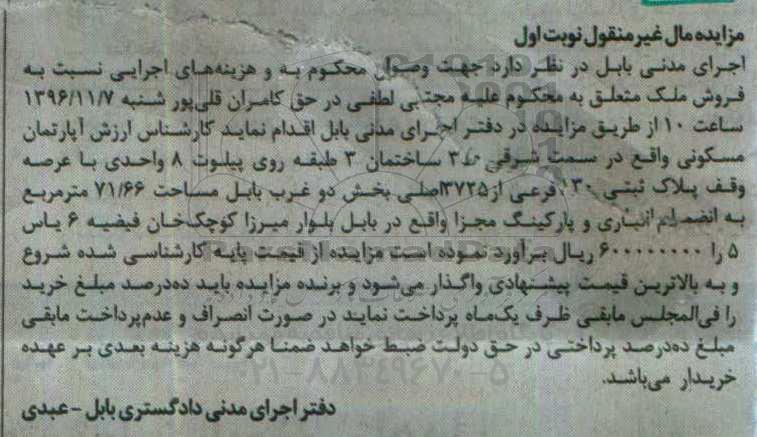 مزایده مال غیرمنقول نوبت اول
اجرای مدنی بابل در نظر دارد جهت وصول محکوم به و هزینه‌های اجرایی نسبت به
فروش ملک متعلق به محکوم علیه مجتبی لطفی در حق کامران قلی‌پور شنبه ۱۳۹۶/۱۱/۷
ساعت ۱۰ از طریق مزایده در دفتر اجرای مدنی بابل اقدام نماید کارشناس ارزش آپارتمان
مسکونی واقع در سمت شرقی ط۳ ساختمان ۳ طبقه روی پیلوت ۸ واحدی با عرصه
وقف پلاک ثبتی فرعی از ۳۷۲۵ اصلی بخش دو غرب بابل مساحت ۷۱/۶۶ مترمربع
به انضمام انباری و پارکینگ مجزا واقع در بابل بلوار میرزا کوچک‌خان فیضیه ۶ یاس
۵ را ۶۰۰۰۰۰۰۰۰ ریال برآورد نموده است مزایده از قیمت پایه کارشناسی شده شروع
و به بالاترین قیمت پیشنهادی واگذار می‌شود و برنده مزایده باید ده‌درصد مبلغ خرید
را فی‌المجلس مابقی ظرف یک‌ماه پرداخت نماید در صورت انصراف و عدم‌پرداخت مابقی
مبلغ ده‌درصد پرداختی در حق دولت ضبط خواهد ضمنا هرگونه هزینه بعدی بر عهده
خریدار می‌باشد.
دفتر اجرای مدنی دادگستری بابل - عبدی
۰۲۱-۸۸۳۴۹۶۷۰-۵